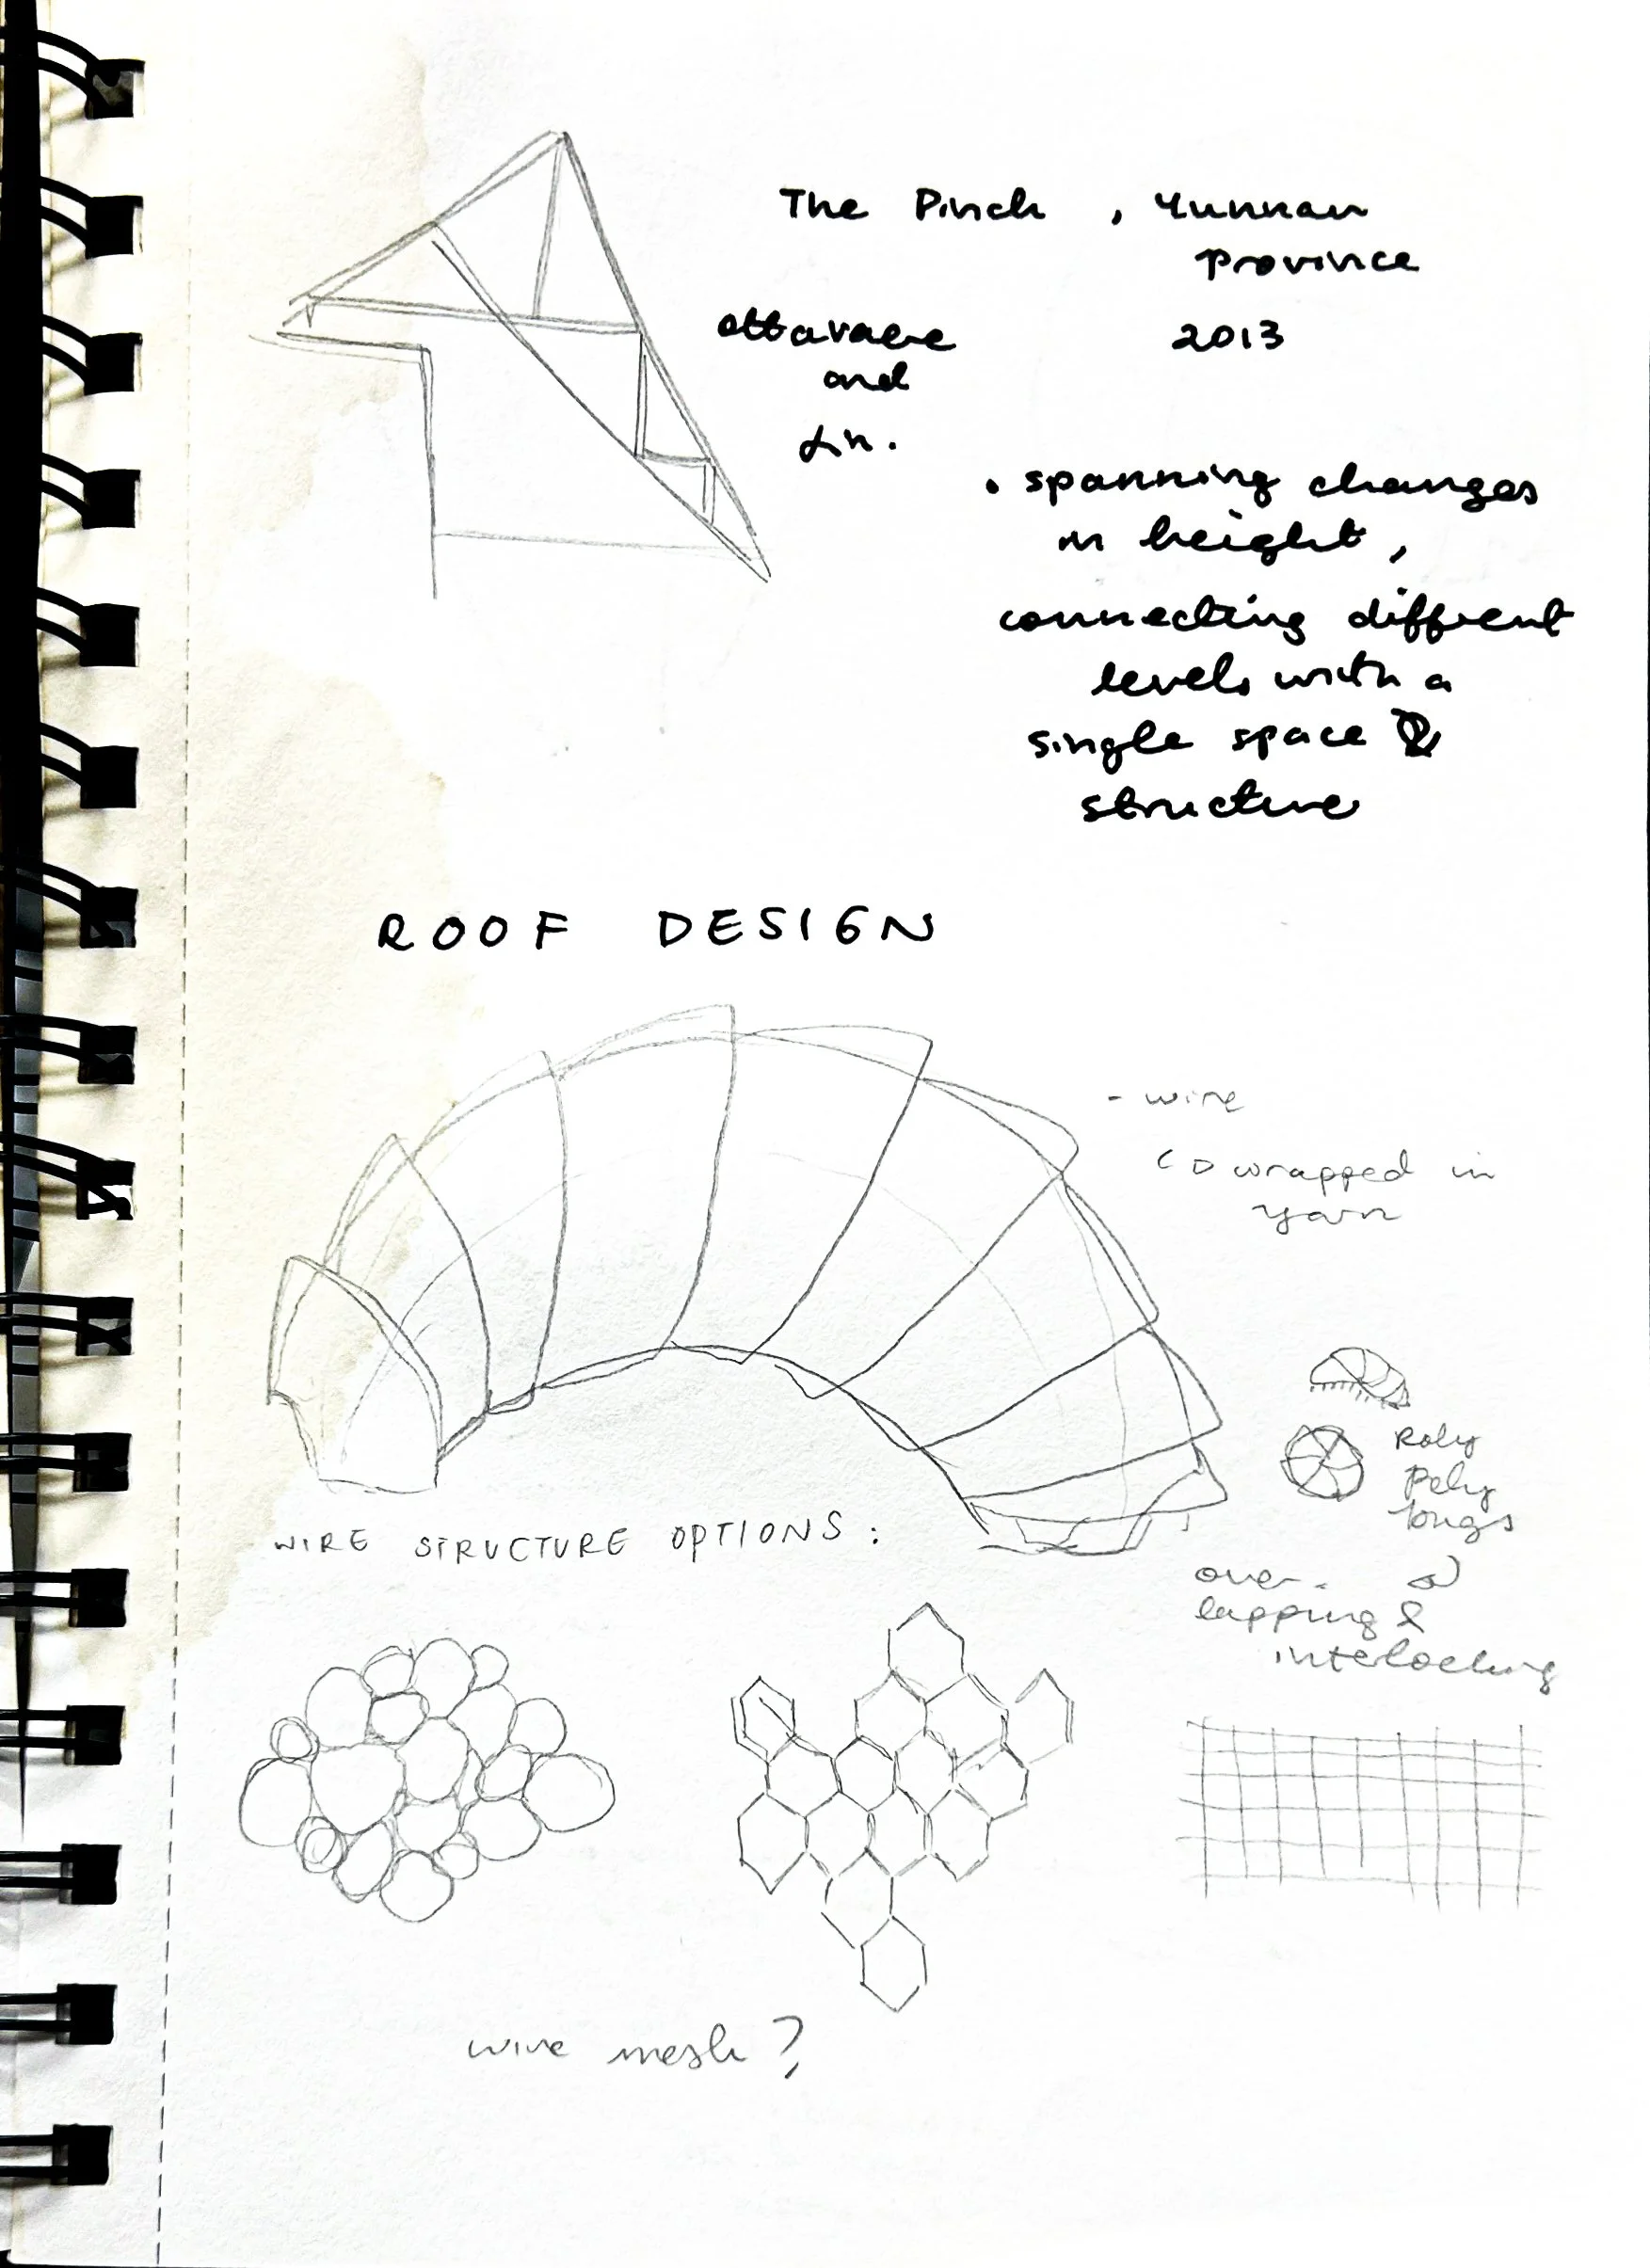 The Pinch , Yunnan
Province
2013
and
Lin.
• spanning changes
in height,
connecting different
levels with a
single space
structure
ROOF DESIGN
- wire
wrapped in
yarn
Roly
Poly
bugs
over-
lapping &
interlocking
WIRE STRUCTURE OPTIONS:
wire mesh?